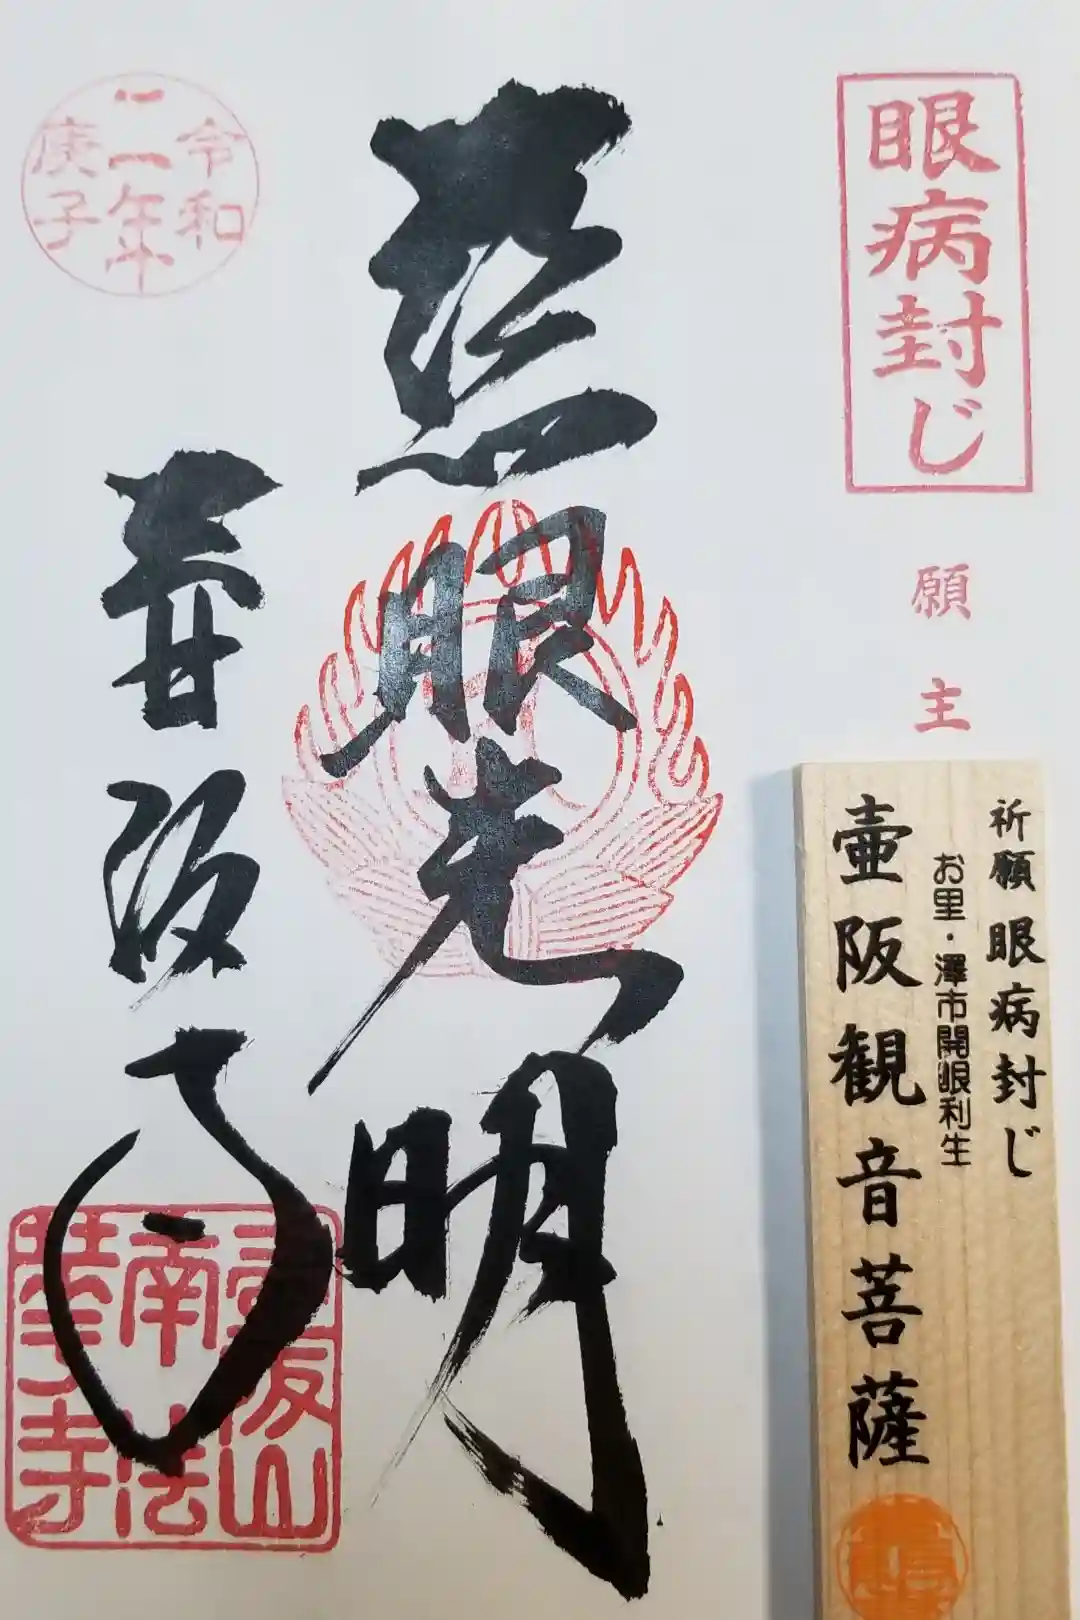 眼病封じ
願主
祈願 眼病封じ
お里・澤市開眼利生
壷阪観音菩薩
慈眼光明
壷阪寺
令和
二年
庚子
壷阪山
南法
華寺